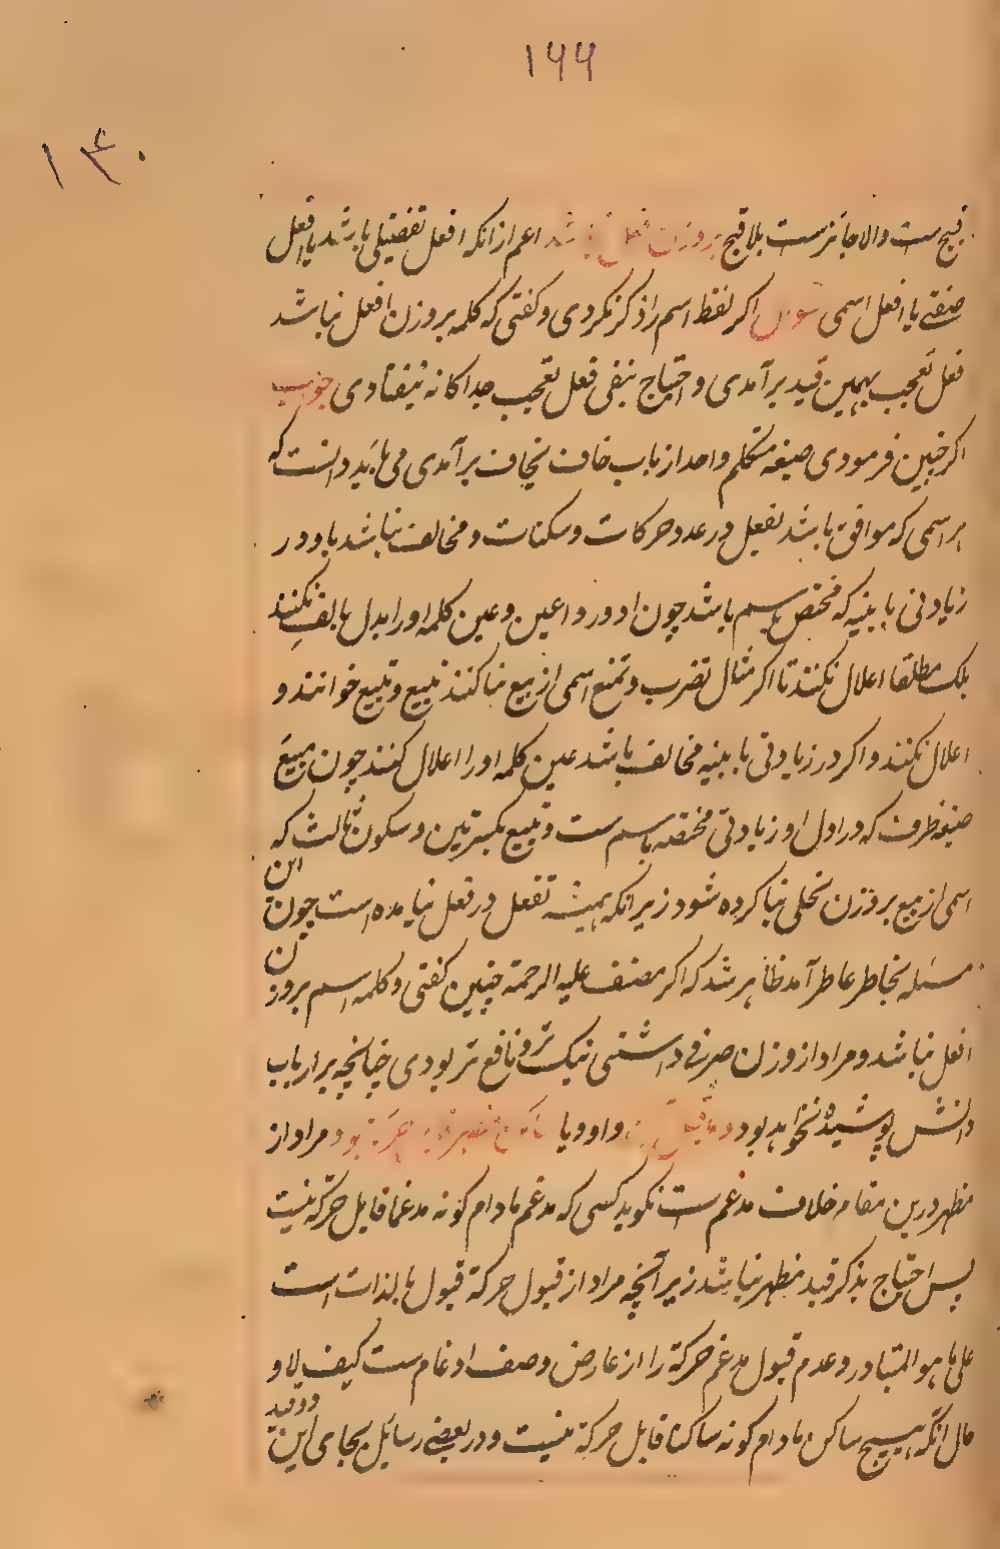 ۱۶۶
۱۳۰
قبیح ست والا جائزست بلا قبح بروزن افعل نباشد اعم ازانکه افعل تفضیلی باشد یا افعل
صفتی یا افعل اسمی سوال اکر لفظ اسم را ذکر نکردی و کفتی که کلمه بروزن افعل نباشد
فعل تعجب بهمین قید برآمدی و احتیاج بنفی فعل تعجب جداکانه نیفتادی جواب
اکر چنین فرمودی صیغه متکلم واحد از باب خاف یخاف برآمدی می باید دانست که
هر اسمی که موافق باشد بفعل در عدد حرکات و سکنات و مخالف نباشد با و در
زیادتی با بنیه که مختص باسم باشد چون ادور و اعین و عین کلمه او را بدل بالف نکنند
بلکه مطلقا اعلال نکنند تا اکر مثال تضرب و تمنع اسمی از بیع بنا کنند تبیع و تبیع خوانند و
اعلال نکنند و اکر در زیادتی با بنیه مخالف باشد عین کلمه او را اعلال کنند چون مبیع
صیغه ظرف که در اول او زیادتی مختصه باسم ست و تبیع بکسرتین و سکون ثالث که
اسمی از بیع بروزن تحلی بنا کرده شود زیرانکه همیشه تفعل در فعل نیامده است چون این
مسئله بخاطر عاطر آمد ظاهر شد که اکر مصنف علیه الرحمة چنین کفتی و کلمه اسم بروزن
افعل نباشد و مراد از وزن صرفی داشتی نیک تر و نافع تر بودی چنانچه بر ارباب
دانش پوشیده نخواهد بود و واو و یا بود و مراد از
مظهر درین مقام خلاف مدغم ست نکوید کسی که مدغم مادام کونه مدغما قابل حرکة نیست
پس احتیاج بذکر قید مظهر نباشد زیرا آنچه مراد از قبول حرکة قبول بالذات است
علی ما هو المتبادر و عدم قبول مدغم حرکة را از عارض وصف ادغام ست کیف لا و
حال آنکه هیچ ساکن مادام کونه ساکنا قابل حرکة نیست و در بعضی رسائل بجای این دو قید